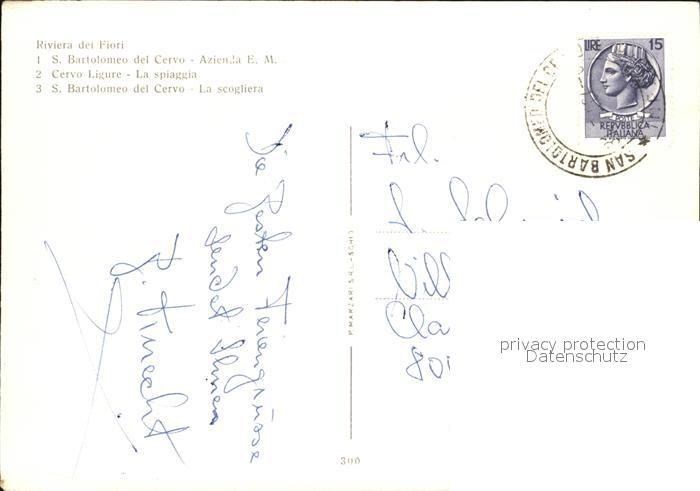 Riviera dei Fiori
1 S. Bartolomeo del Cervo - Azienda E. M.
2 Cervo Ligure - La spiaggia
3 S. Bartolomeo del Cervo - La scogliera
LIRE 15
POSTE
REPVBBLICA
ITALIANA
SAN BARTOLOMEO DEL CE
Die Besten Feriengrüsse
sendet Ihnen
Frl.
Vill
Cla
P. MARZARI S.R.L. - SCHIO
300
privacy protection
Datenschutz